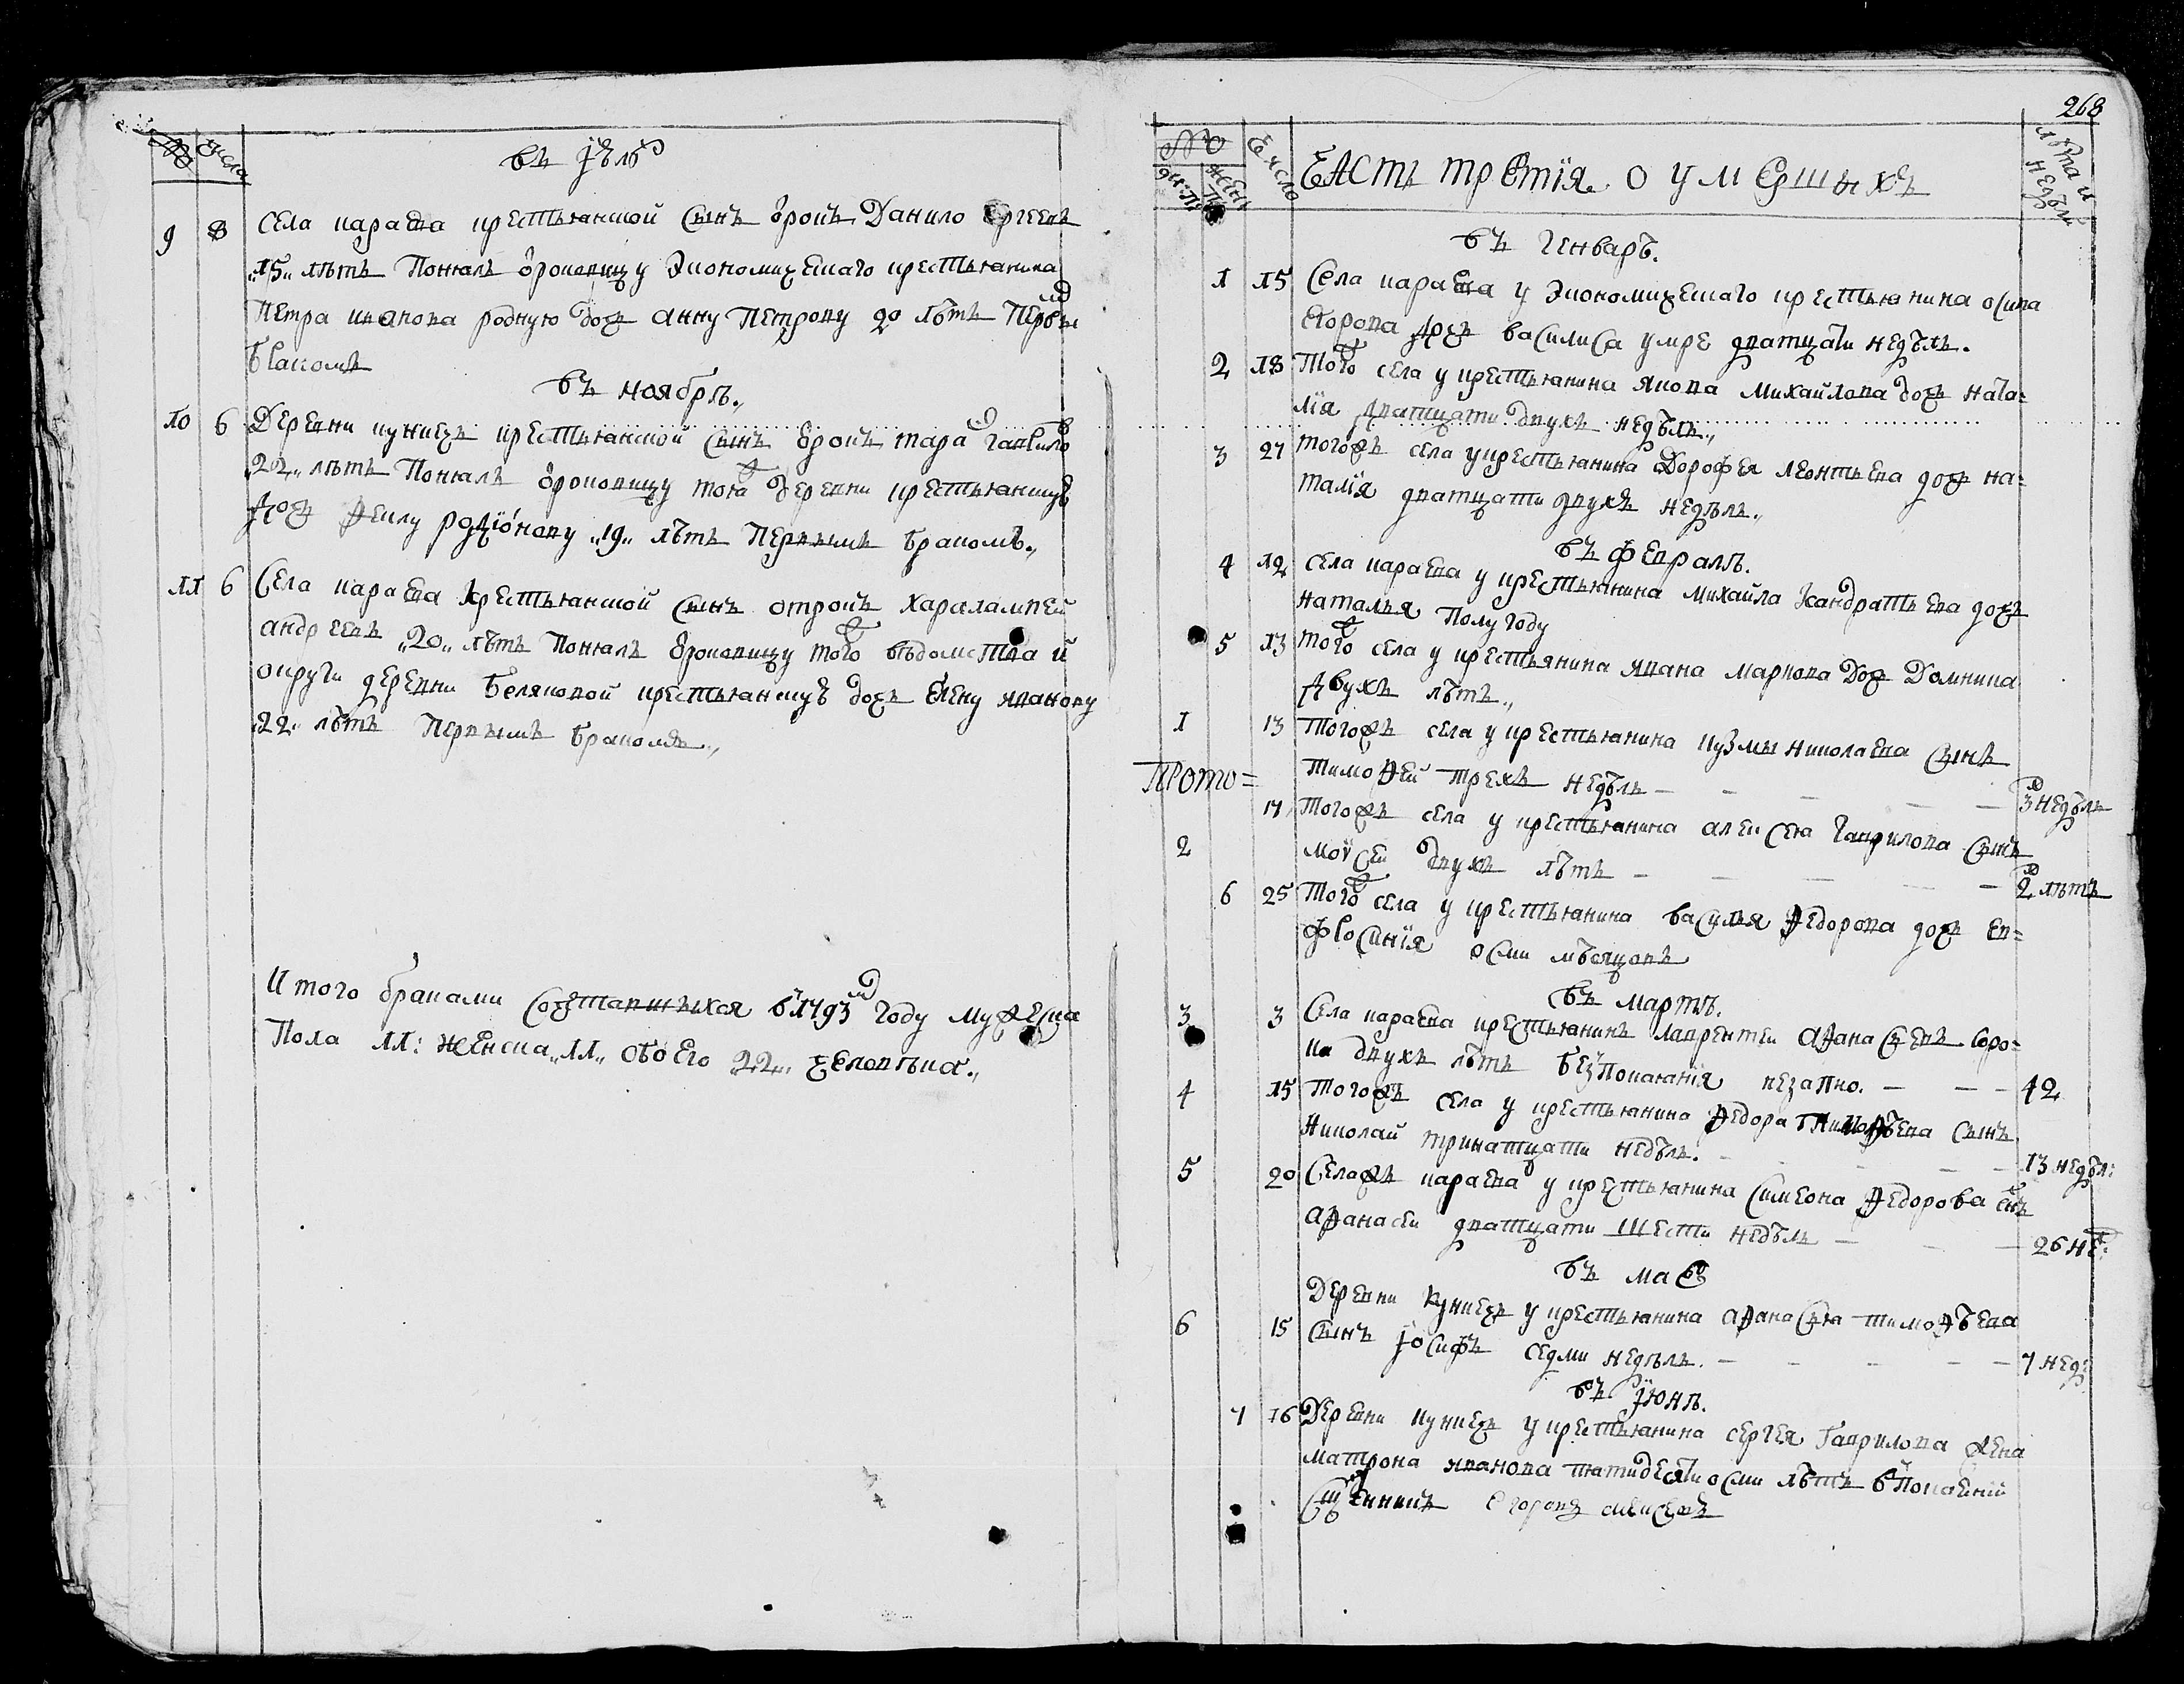 № числа
въ Іюлѣ
9 8 Села караева крестьянской сынъ ѻтрокъ Данило Сергеевъ
„15„ лѣтъ Поялъ ѻтроковицу Экономическаго крестьянина
Петра иванова родную дочь анну Петрову 20 лѣтъ Первымъ
бракомъ
въ ноябрѣ.,
10 6 Деревни куничь крестьянской сынъ ѻтрокъ тарас гаврило
„22„ лѣтъ Поялъ ѻтроковицу тояж деревни крестьянинѣ
дочь Ѳеклу родїонову „19„ лѣтъ Первымъ бракомъ.,
11 6 Села караева Крестьянской сынъ отрокъ Харалампей
андреевъ „20„ лѣтъ Поялъ ѻтроковицу тогож вѣдомства и
округи деревни беляковой крестьянску дочь елену иванову
22 лѣтъ Первымъ бракомъ.,
Итого браками сочетавшихся в 1793м году мужеска
Пола 11: женска „11„ обоего 22„ человѣка.,
268
№ Число ЧАСТЬ третїя о умершихъ лѣта и недѣли
муж. п. жен. п.
въ Генварѣ.
1 15 Села караева у Экономическаго крестьянина осипа
Егорова дочь василиса умре дватцати недѣль.
2 18 Тогож села у крестьянина якова Михайлова дочь ната=
лїя дватцати двухъ недѣль.,
3 27 тогожъ села у крестьянина Дорофея леонтьева дочь на=
талїя дватцати двухъ недѣль.,
въ февралѣ.
4 12 села караева у крестьянина Михайла Кандратьева дочь
наталья Полугоду
5 13 тогож села у крестьянина ивана маркова Дочь Домника
двухъ лѣтъ.,
1 13 Тогожъ села у крестьянина кузмы николаева сынъ
тимоѳей трехъ недѣль — 3 недѣль
17 Тогожъ села у крестьянина алексея Гаврилова сынъ
2 моѵсей двухъ лѣтъ — 2 лѣтъ
6 25 Тогож села у крестьянина василья Ѳедорова дочь ев=
фросинїя осми мѣсяцовъ
въ мартѣ.
3 3 Села караева крестьянинъ лаврентей аѳанасьевъ соро=
ка двухъ лѣтъ безпокаянїя незапно. — 42
4 15 тогожъ села у крестьянина Ѳедора Тимоѳѣева сынъ
николай тринатцати недѣль. — 13 недѣл:
5 20 Селажъ караева у крестьянина Симеона Ѳедорова снъ
аѳанасей дватцати шести недѣль — 26 не:
въ маѣ
Деревни Куничь у крестьянина аѳанасья тимоѳѣева
6 15 сынъ іосифъ седми недѣль. — 7 нед:
въ Їюнѣ.
7 16 Деревни куничь у крестьянина сергея Гаврилова жена
матрона иванова пятидесяти осми лѣтъ в покаянїи
Священникъ Егоровъ